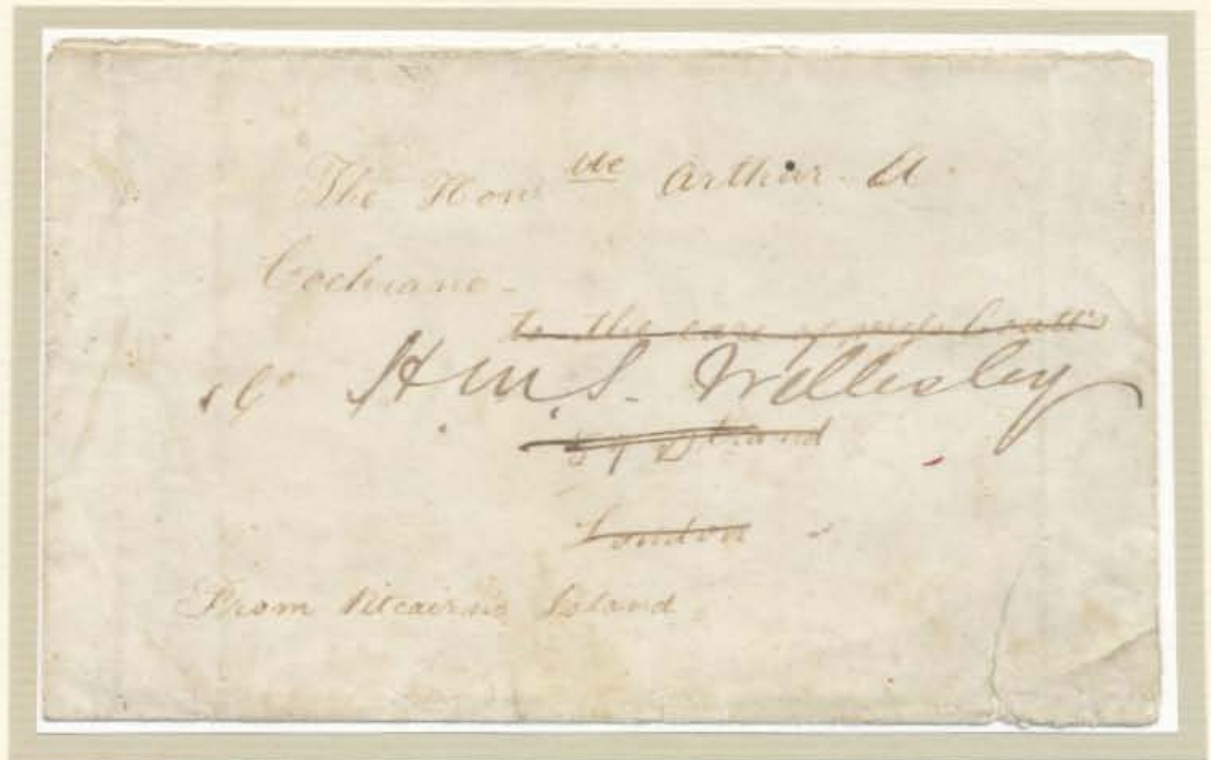 The Honble Arthur A.
Cochrane -
to the care of
H.M.S. Wellesley
Strand
London
From Pitcairns Island